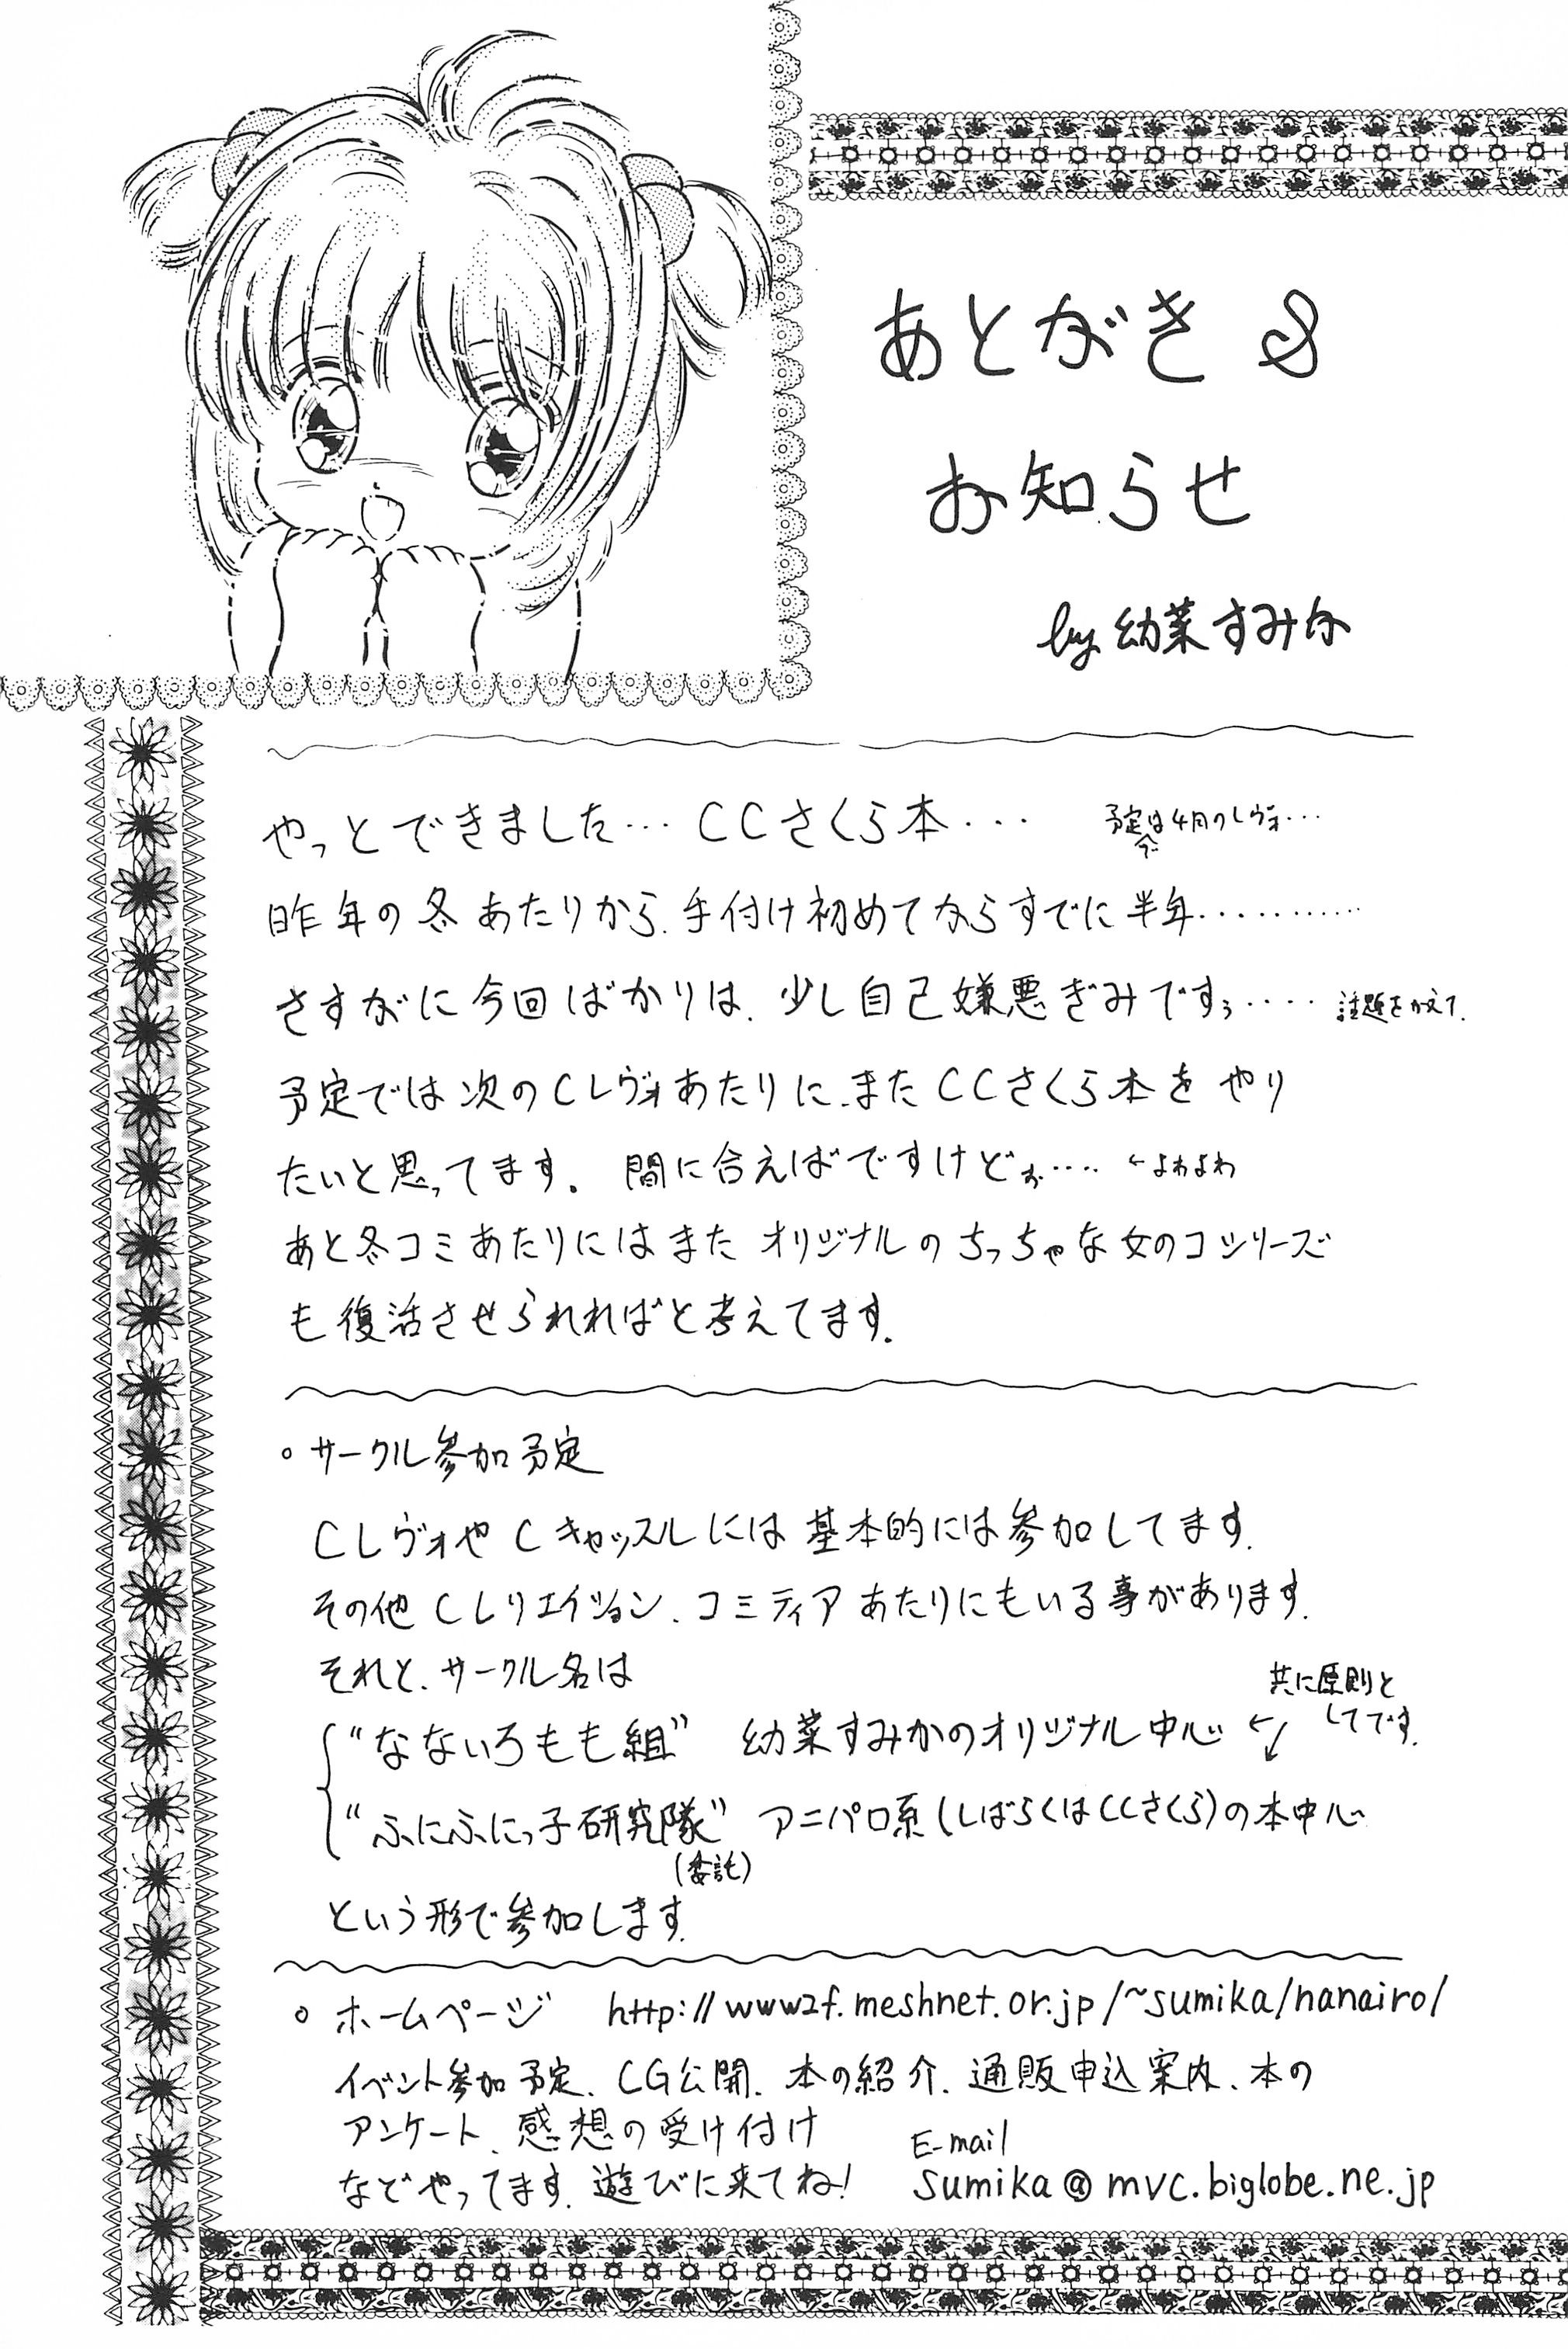 あとがき &
お知らせ
by 幼菜すみか
やっとできました… CCさくら本… 予定は4月のレヴォ…
昨年の冬あたりから、手付け初めてからすでに半年…………
さすがに今回ばかりは、少し自己嫌悪ぎみですぅ…… 話題をかえて、
予定では次のCレヴォあたりに、またCCさくら本をやり
たいと思ってます。間に合えばですけどぉ…… ←よわよわ
あと冬コミあたりにはまたオリジナルのちっちゃな女のコシリーズ
も復活させられればと考えてます。
○サークル参加予定
CレヴォやCキャッスルには基本的には参加してます。
その他Cレリエイション、コミティアあたりにもいる事があります。
それと、サークル名は
"なないろもも組" 幼菜すみかのオリジナル中心 ← 共に原則と
してです。
"ふにふにっ子研究隊" アニパロ系(しばらくはCCさくら)の本中心
(委託)
という形で参加します。
○ホームページ http://www2f.meshnet.or.jp/~sumika/nanairo/
イベント参加予定、CG公開、本の紹介、通販申込案内、本の
アンケート、感想の受け付け
などやってます。遊びに来てね!
E-mail
sumika@mvc.biglobe.ne.jp